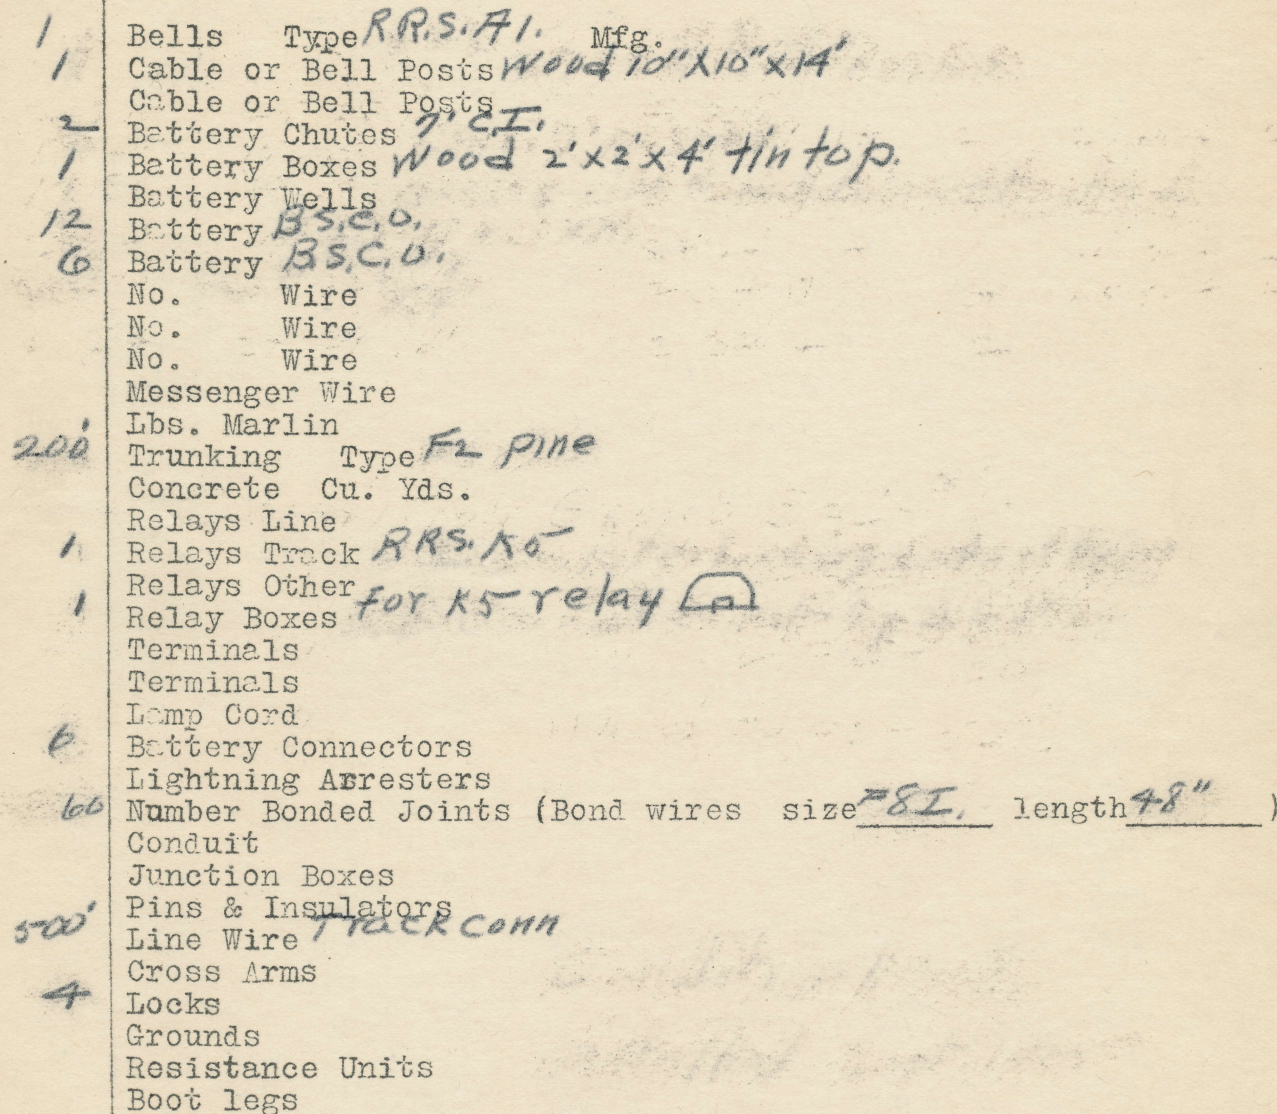 1 Bells Type R.R.S. A1. Mfg.
1 Cable or Bell Posts Wood 10"X10"X14'
Cable or Bell Posts
2 Battery Chutes 7' C.I.
1 Battery Boxes Wood 2'X2'X4' tin top.
Battery Wells
12 Battery B.S.C.O.
6 Battery B.S.C.O.
No. Wire
No. Wire
No. Wire
Messenger Wire
Lbs. Marlin
200' Trunking Type F2 pine
Concrete Cu. Yds.
Relays Line
1 Relays Track RRS. K5
Relays Other
1 Relay Boxes for K5 relay
Terminals
Terminals
Lamp Cord
6 Battery Connectors
Lightning Arresters
60 Number Bonded Joints (Bond wires size 8I. length 48" )
Conduit
Junction Boxes
Pins & Insulators
500' Line Wire Track Conn
Cross Arms
4 Locks
Grounds
Resistance Units
Boot legs